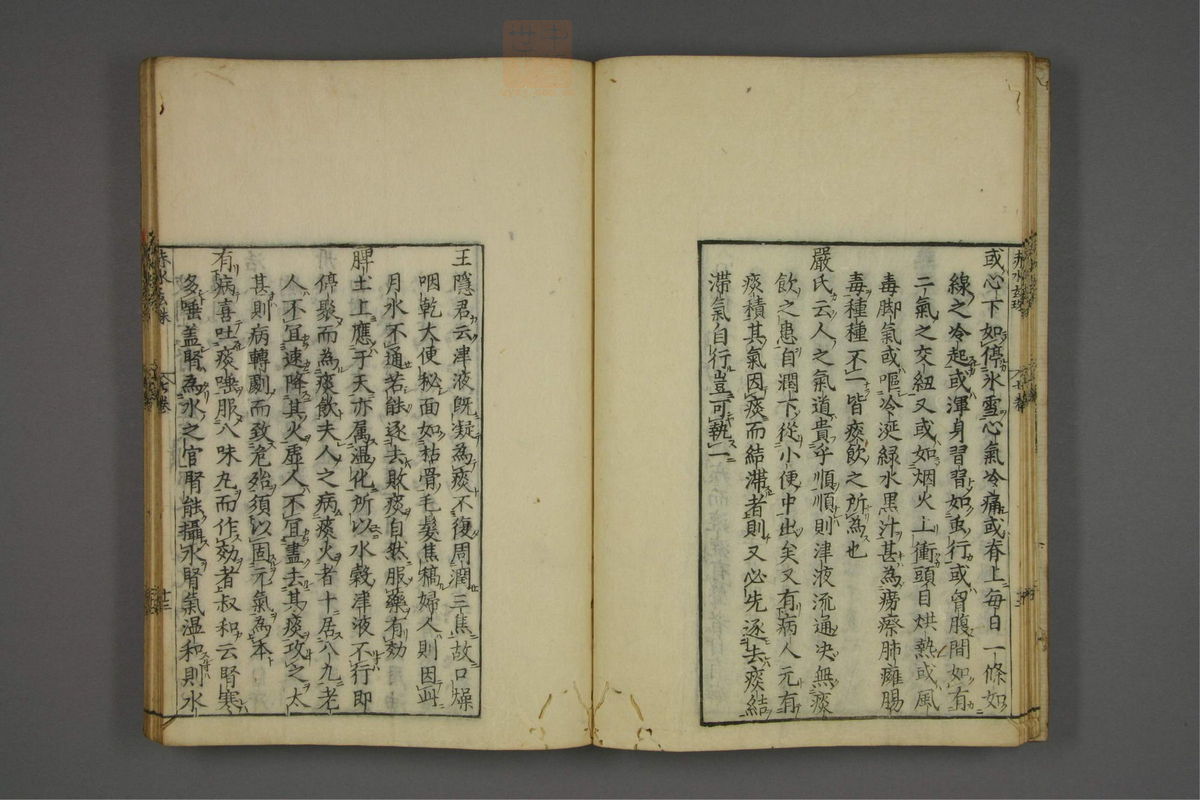 或心下如停氷雪心氣冷痛或脊上每日一條如
線之冷起或渾身習習如䖝行或胷腹間如有
二氣之交紐又或如烟火上衝頭目烘熱或風
毒脚氣或嘔冷涎綠水黒汁甚為癆瘵肺癰腸
毒種種不一皆痰飲之所為也
嚴氏云人之氣道貴乎順順則津液流通决無痰
飲之患自潤下從小便中出矣又有病人元有
痰積其氣因痰而結滯者則又必先逐去痰結
滯氣自行豈可執一
赤水玄珠
七卷
十三
王隱君云津液旣凝為痰不復周潤三焦故口燥
咽乾大便秘面如枯骨毛髮焦稿婦人則因此
月水不通若能逐去敗痰自然服藥有効
脾土上應于天亦属温化所以水穀津液不行即
停聚而為痰飲夫人之病痰火者十居八九老
人不宜速降其火虛人不宜盡去其痰攻之太
甚則病轉劇而致危殆須以固元氣為本
有病喜吐痰唾服八味丸而作効者叔和云腎寒
多唾盖腎為水之官腎能攝水腎氣温和則水